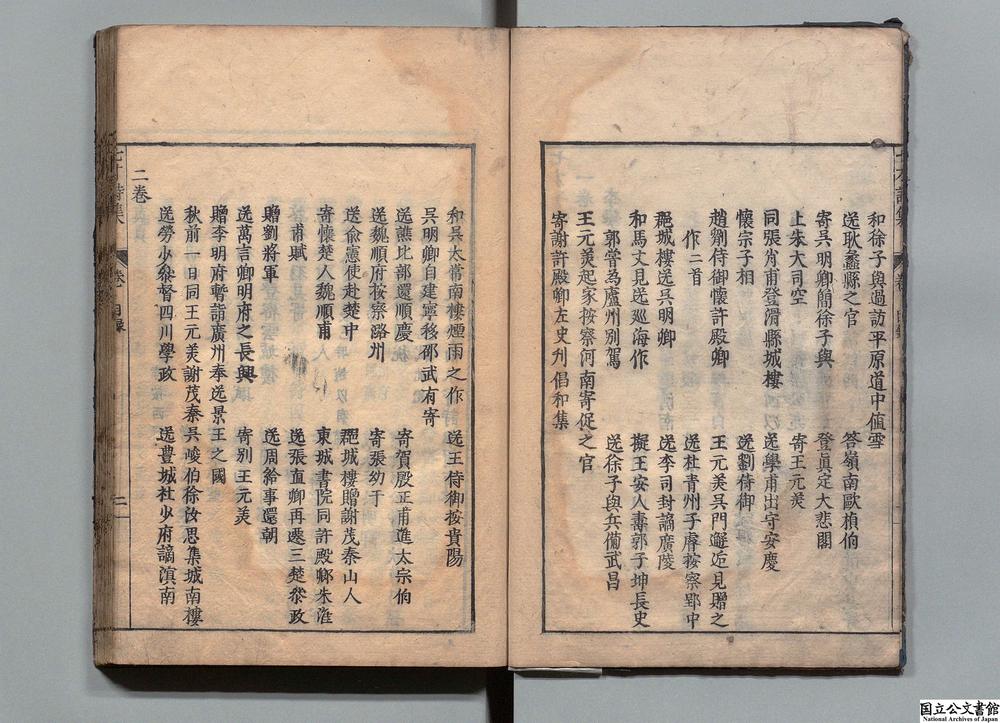 和徐子與過訪平原道中值雪
送耿蠡縣之官 答嶺南歐楨伯
寄吳明卿簡徐子與 登眞定大悲閣
上朱大司空 寄王元美
同張肖甫登滑縣城樓 送學甫出守安慶
懷宗子相 送劉侍御
趙劑侍御懷許殿卿 王元美吳門邂逅見贈之
作二首 送杜青州子睿按察郢中
郡城樓送吳明卿 送李司封謫廣陵
和馬丈見送巡海作 擬王安人壽郭子坤長史
郭嘗為廬州別駕 送徐子與兵備武昌
王元美起家按察河南寄促之官
寄謝許殿卿左史刋倡和集
和吳太常南樓煙雨之作 送王侍御按貴陽
吳明卿自建寧移邵武有寄
送譙比部還順慶 寄賀殷正甫進太宗伯
送魏順甫按察潞州 寄張幼于
送俞憲使赴楚中 郡城樓贈謝茂秦山人
寄懷楚人魏順甫 東城書院同許殿卿朱淮
甫賦 送張直卿再遷三楚叅政
贈劉將軍 送周給事還朝
送萬言卿明府之長興 寄別王元美
贈李明府暫詣廣州奉送景王之國
秋前一日同王元美謝茂秦吳峻伯徐汝思集城南樓
送勞少叅督四川學政 送豐城杜少府謫滇南
二卷
卷一 目錄
國立公文書館
National Archives of Japan